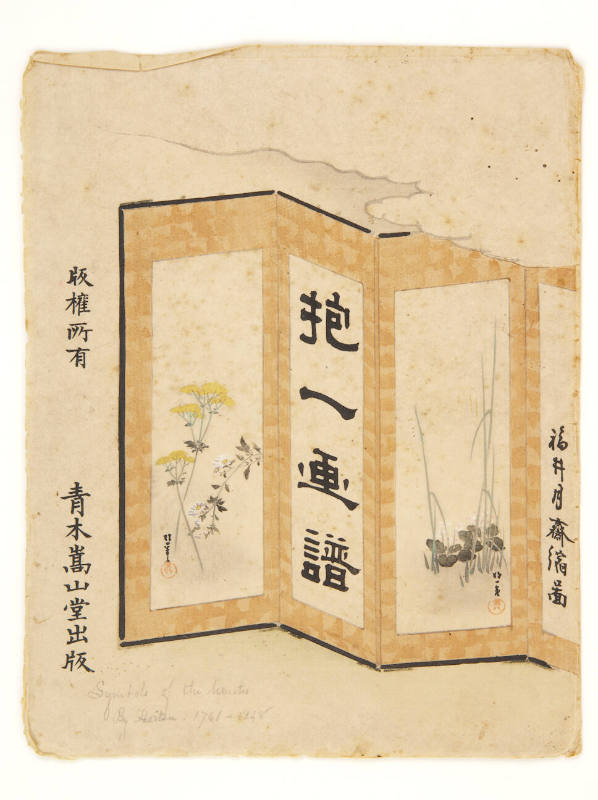 福井月齋縮圖
抱一画譜
版権所有
青木嵩山堂出版
抱一筆
Symbols of the
By Hoitsu. 1761 -